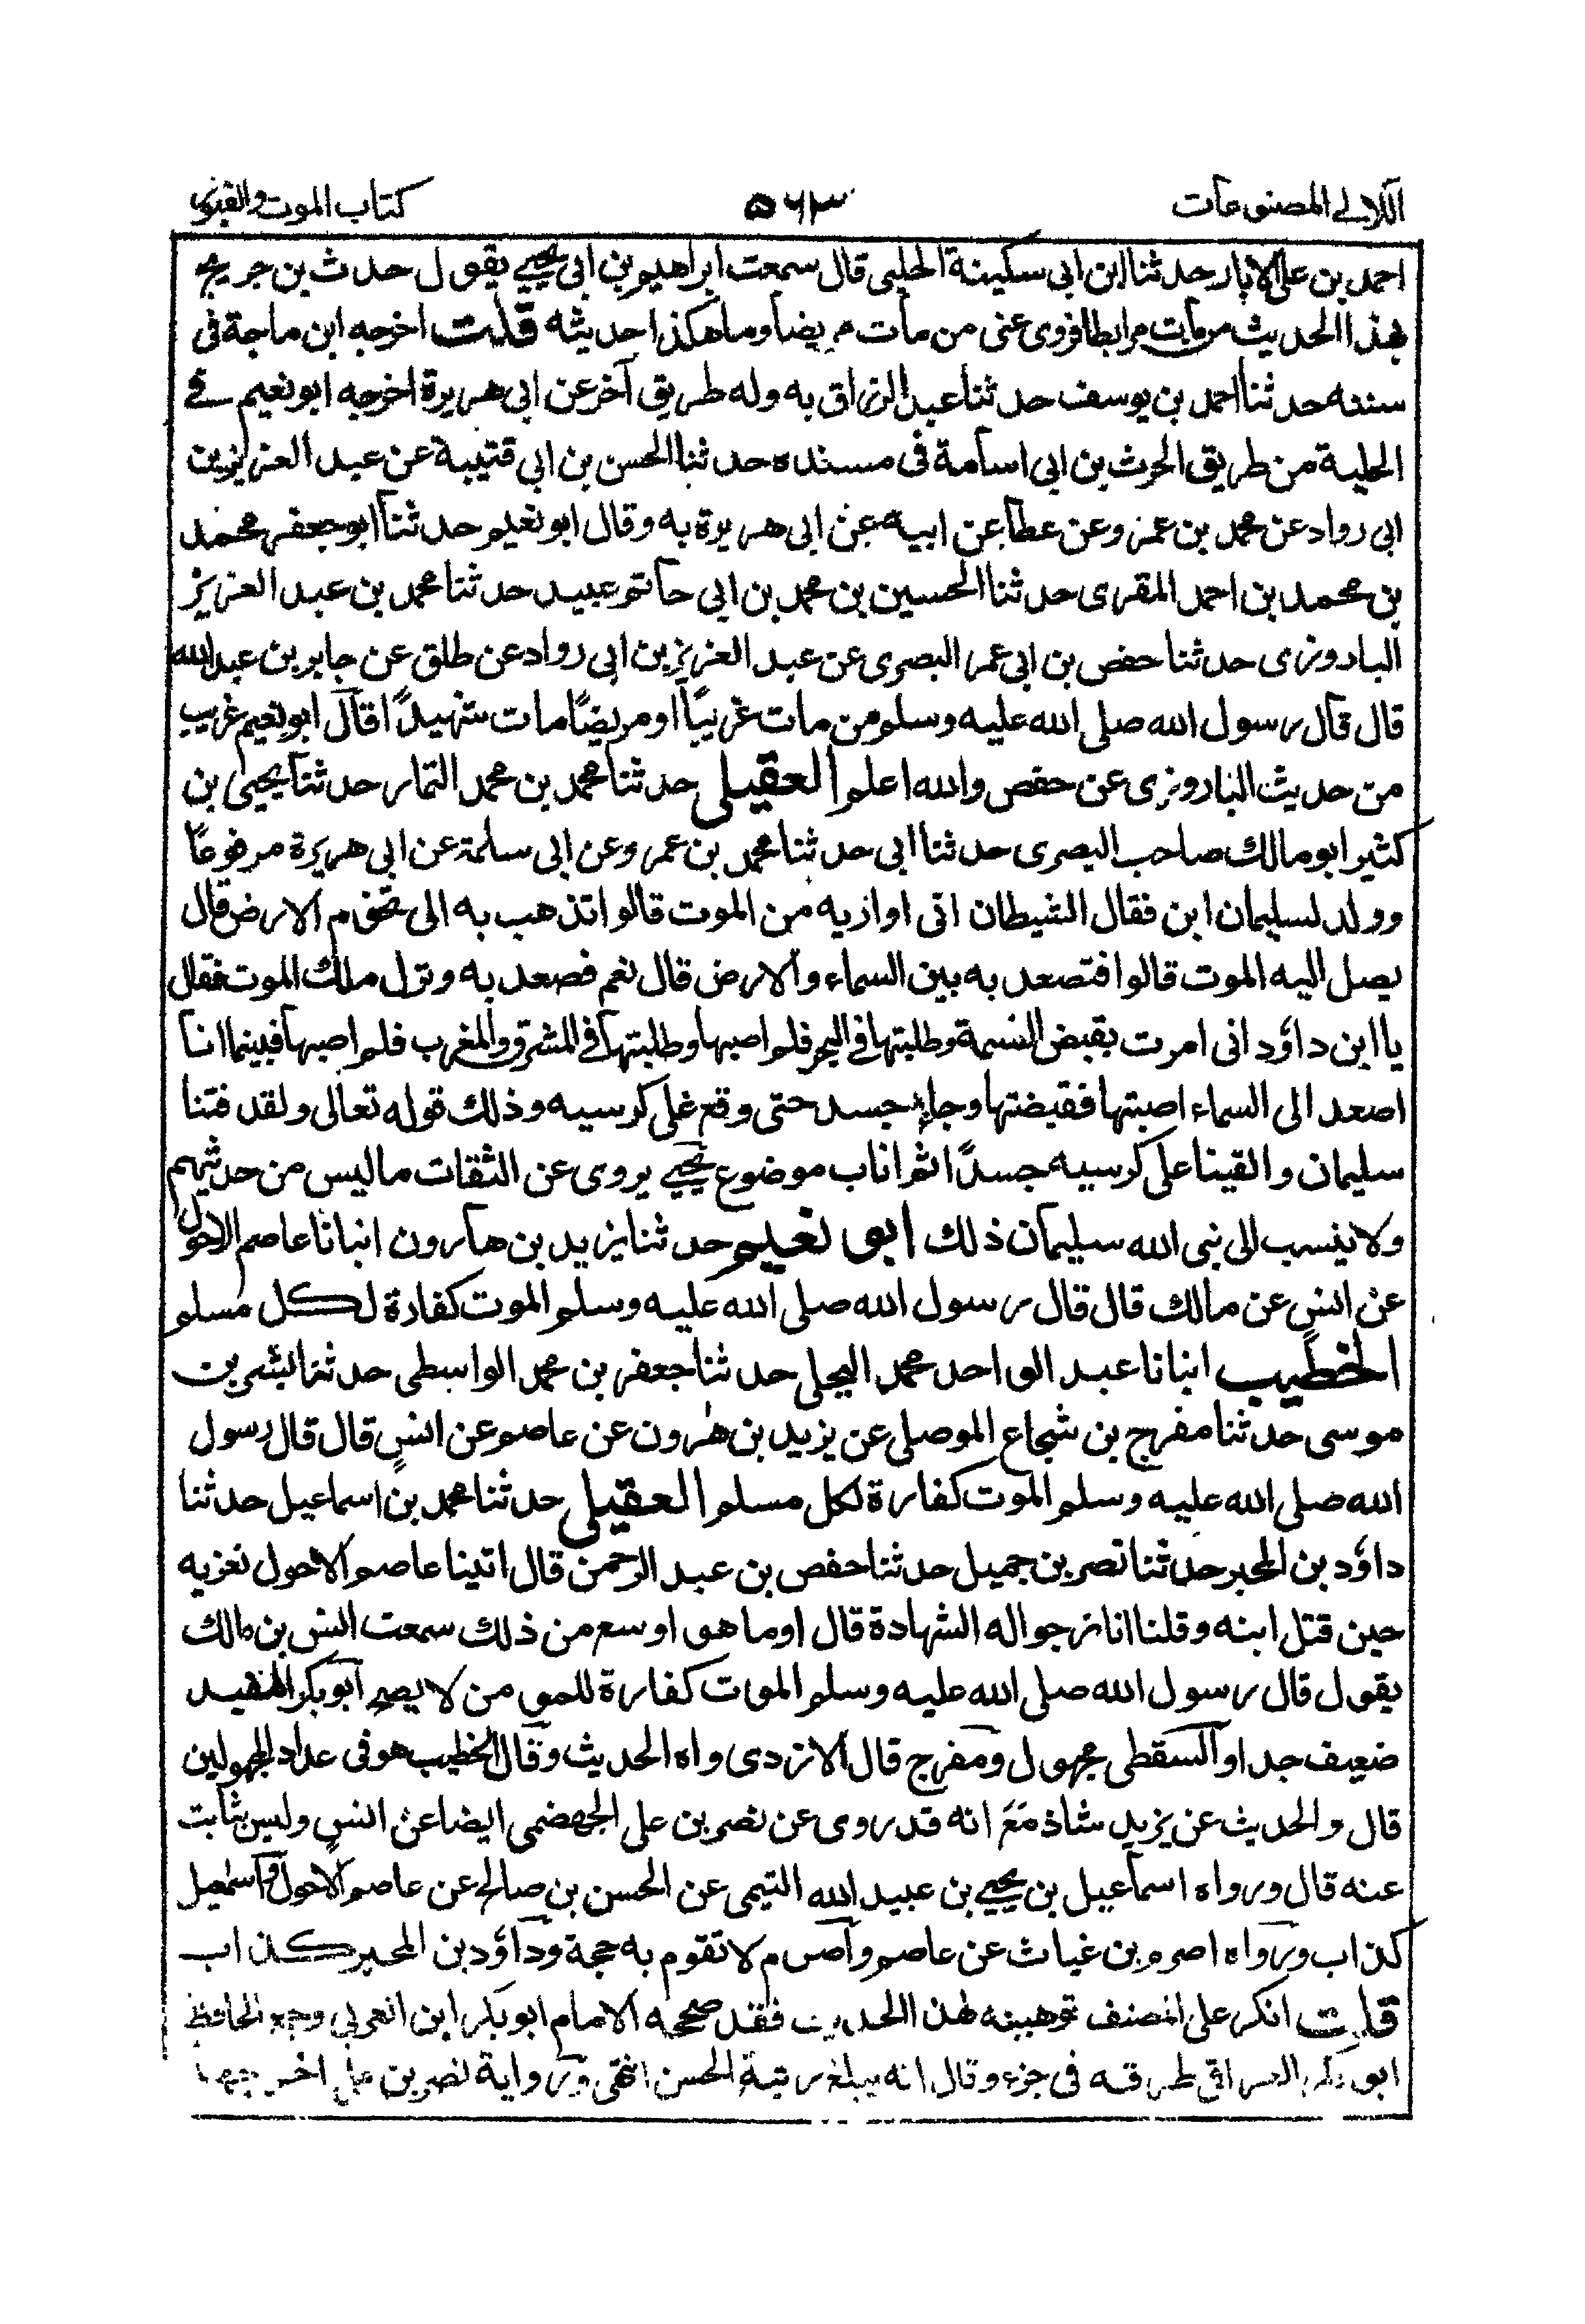 اللآلى المصنوعات ۵۶۳ كتاب الموت والقبور
احمد بن على الابار حدثنا ابن ابى سكينة الحلبى قال سمعت ابراهيم بن ابى يحيى يقول حدث بن جريج
بهذا الحديث من مات مرابطا فروى عنى من مات مريضا وما هكذا حديثه قلت اخرجه ابن ماجة فى
سننه حدثنا احمد بن يوسف حدثنا عبد الرزاق به وله طريق آخر عن ابى هريرة اخرجه ابو نعيم فى
الحلية من طريق الحرث بن ابى اسامة فى مسنده حدثنا الحسن بن ابى قتيبة عن عبد العزيز بن
ابى رواد عن محمد بن عمر وعن عطا عن ابيه عن ابى هريرة به وقال ابو نعيم حدثنا ابو جعفر محمد
بن محمد بن احمد المقرى حدثنا الحسين بن محمد بن ابى حاتم عبيد حدثنا محمد بن عبد العزيز
الباد ونرى حدثنا حفص بن ابى عمر البصرى عن عبد العزيز بن ابى رواد عن طلق عن جابر بن عبد الله
قال قال رسول الله صلى الله عليه وسلم من مات غريبًا او مريضًا مات شهيدًا اقال ابو نعيم غريب
من حديث البادونرى عن حفص والله اعلم العقيلى حدثنا محمد بن محمد التمار حدثنا يحيى بن
كثير ابو مالك صاحب البصرى حدثنا ابى حدثنا محمد بن عمر وعن ابى سلمة عن ابى هريرة مرفوعًا
وولد لسليمان ابن فقال الشيطان انى اوازيه من الموت قالوا اتذهب به الى تخوم الارض قال
يصل اليه الموت قالوا فتصعد به بين السماء والارض قال نعم فصعد به ونزل ملك الموت فقال
يا ابن داؤد انى امرت بقبض النسمة وطلبتها فى البحر فلم اصبها وطلبتها فى المشرق والمغرب فلم اصبها فبينما انا
اصعد الى السماء اصبتها فقبضتها وجاء جسد حتى وقع على كرسيه وذلك قوله تعالى ولقد فتنا
سليمان والقينا على كرسيه جسدًا ثم اناب موضوع يحيى يروى عن الثقات ما ليس من حديثهم
ولا ينسب الى نبى الله سليمان ذلك ابو نعيم حدثنا يزيد بن هارون انبانا عاصم الاحول
عن انس عن مالك قال قال رسول الله صلى الله عليه وسلم الموت كفارة لكل مسلم
الخطيب انبانا عبد الواحد محمد البجلى حدثنا جعفر بن محمد الواسطى حدثنا بشر بن
موسى حدثنا مفرج بن شجاع الموصلى عن يزيد بن هٰرون عن عاصم عن انس قال قال رسول
الله صلى الله عليه وسلم الموت كفارة لكل مسلم العقيلى حدثنا محمد بن اسماعيل حدثنا
داؤد بن المحبر حدثنا نصر بن جميل حدثنا حفص بن عبد الرحمن قال اتينا عاصم الاحول نعزيه
حين قتل ابنه وقلنا انا نرجو اله الشهادة قال اوما هو اوسع من ذلك سمعت انس بن مالك
يقول قال رسول الله صلى الله عليه وسلم الموت كفارة للمومن لا يصح ابو بكر المفيد
ضعيف جدا والسقطى مجهول ومفرج قال الازدى واه الحديث وقال الخطيب هو فى عداد المجهولين
قال والحديث عن يزيد شاذ مَعَ انه قد روى عن نصر بن على الجهضمى ايضا عن انس وليس بثابت
عنه قال ورواه اسماعيل بن يحيى بن عبيد الله التيمى عن الحسن بن صالح عن عاصم الاحول واسمٰعيل
كذاب ورواه اصرم بن غياث عن عاصم وآصرم لا تقوم به حجة وداؤد بن المحبر كذاب
قلت انكر على المصنف توهينه لهذا الحديث فقد صححه الامام ابو بكر ابن العربى وجمع الحافظ
ابو العراقى طرقه فى جزء وقال انه يبلغ رتبة الحسن انتهى ورواية نصر بن على اخرجها